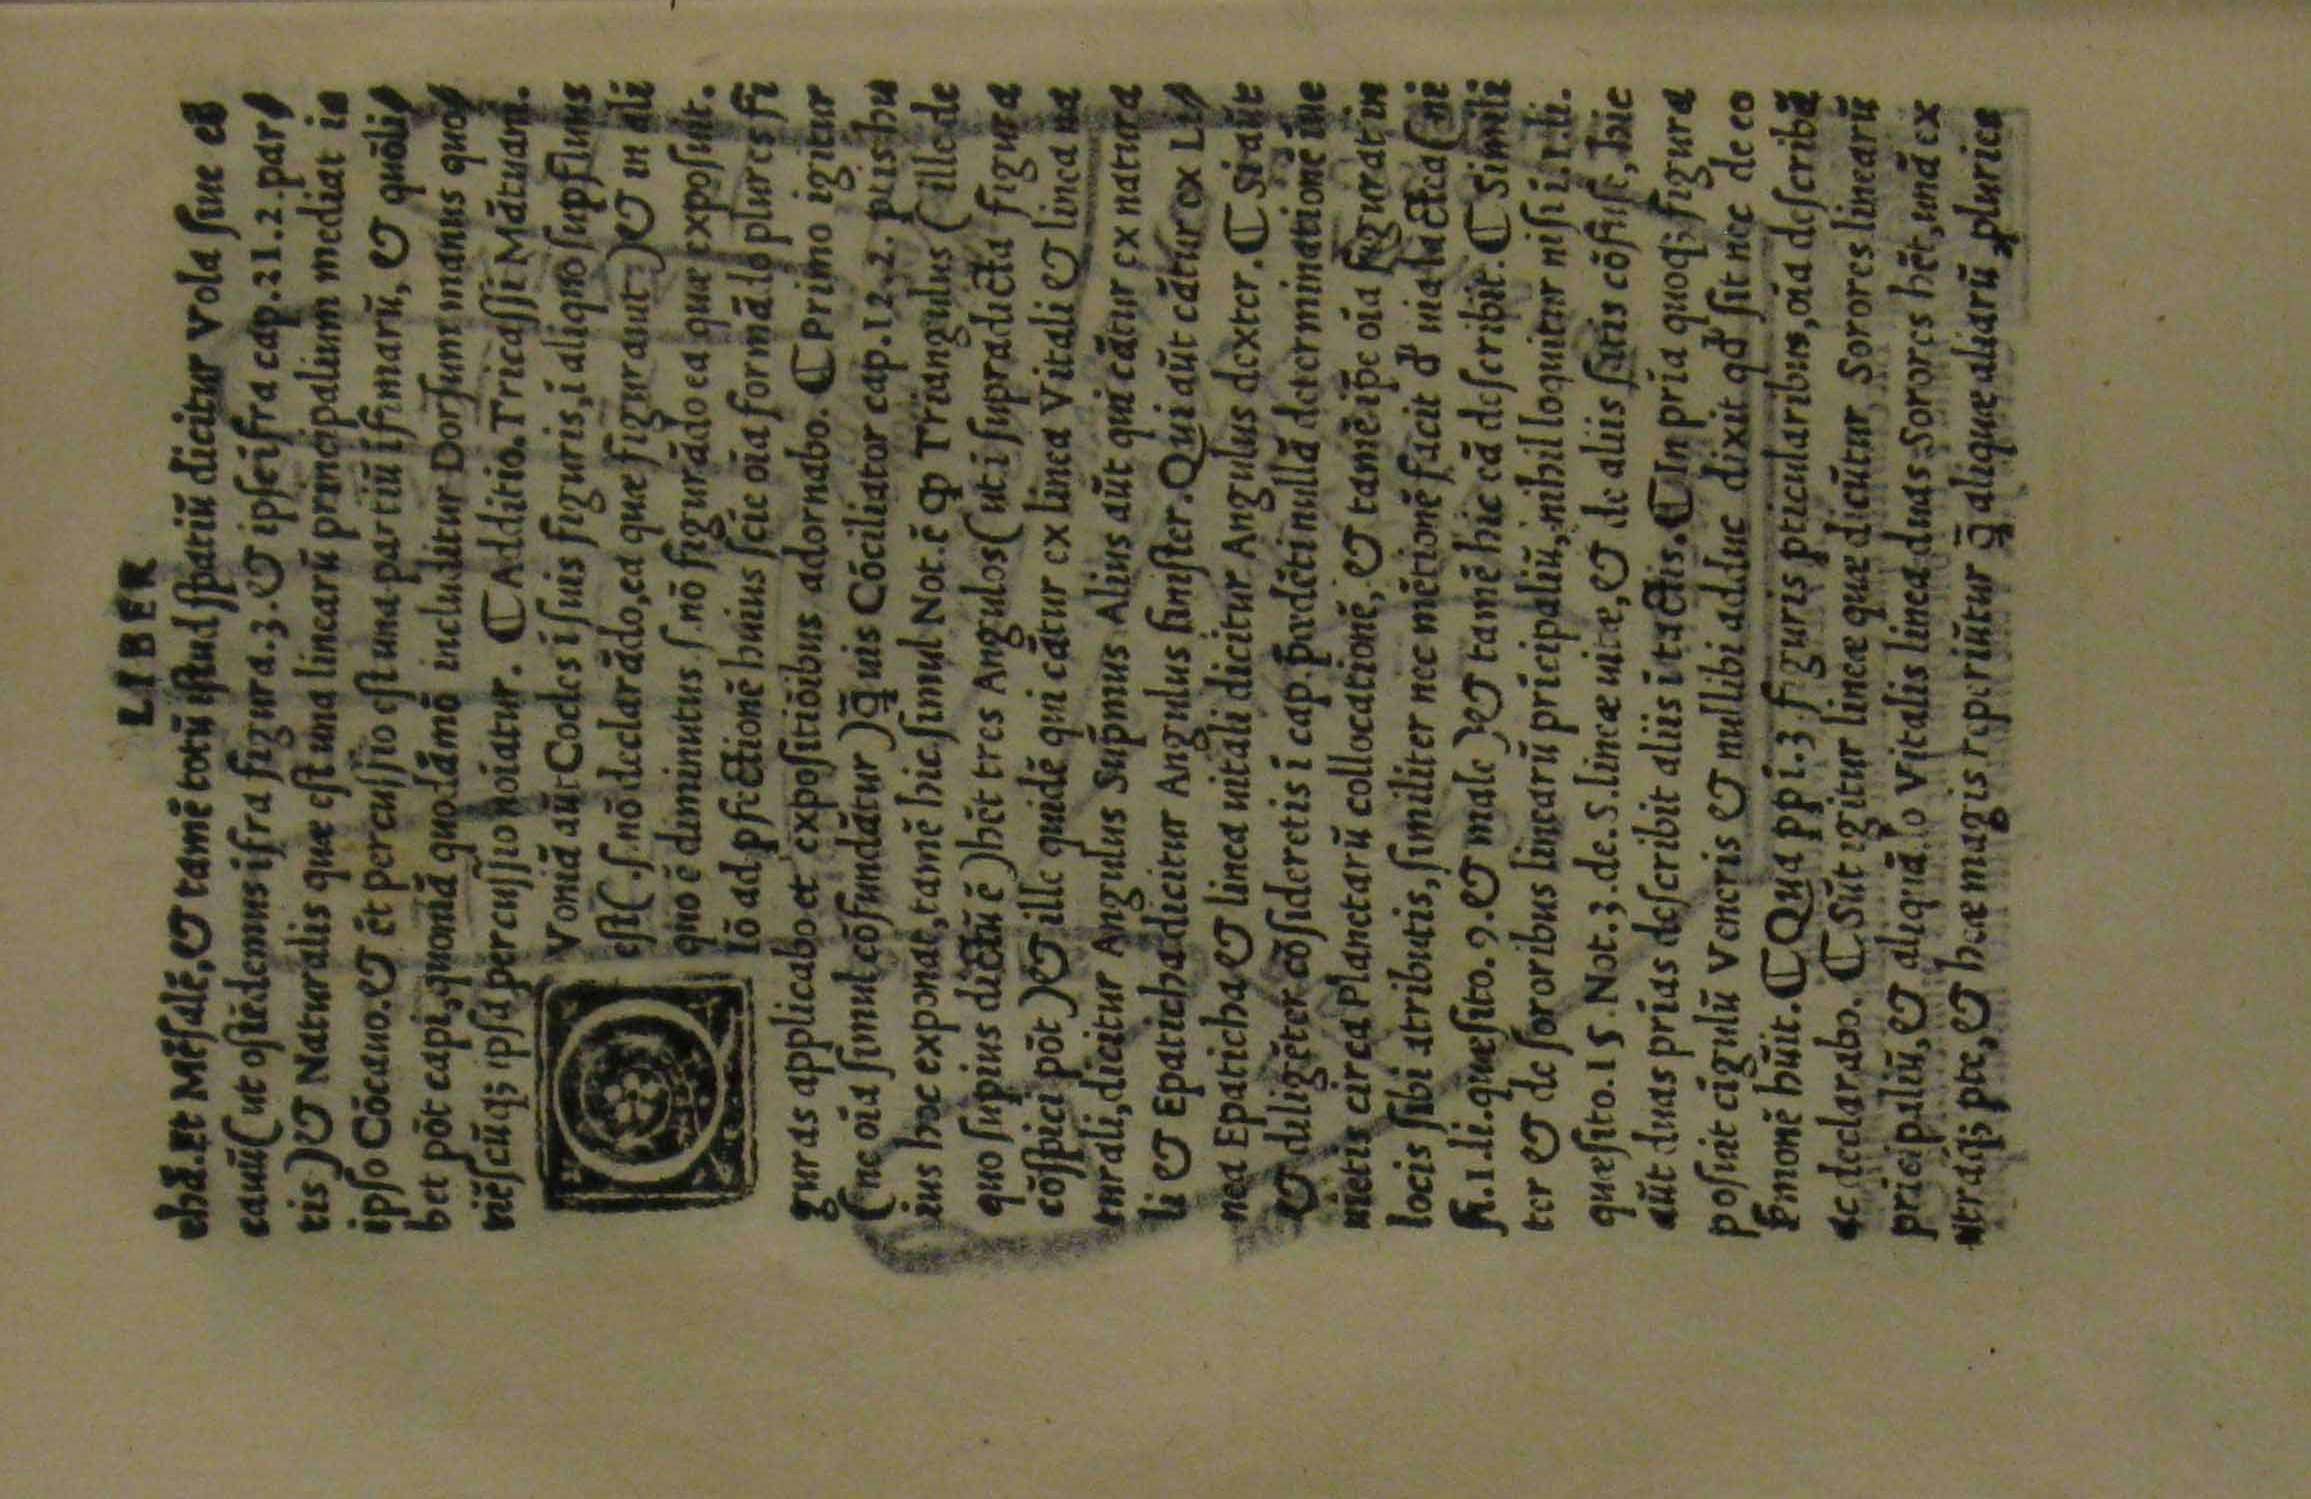 LIBER
cha. Et Mēsalē, & tamē totū istud spatiū dicitur Vola siue cō
cauū (ut ostēdemus ifra figura.3. & ipse ifra cap.21.2.par/
tis) & Naturalis quae est una linearū principalium mediat in
ipso Cōcauo. & ēt percussio est una partiū ifimarū, & quōli/
bet pōt capi, quoniā quodāmō includitur Dorsum manus quo/
ties cūq; ipsa percussio noīatur. ⁋ Additio. Tricassi Mātuani.
Voniā aūt Cocles i suis figuris, i aliquo supfluus
est (.s. nō declarādo, ea quae figuraut) & in ali
quo ē diminutus .s. nō figurādo ea quae exposuit.
Iō ad pfectionē huius sciē oīa formādo plures fi
guras applicabo et expositiōibus adornabo. ⁋ Primo igitur
(ne oīa simul cōfundātur) q̄uis Cōciliator cap.12.2. ptis hu
ius hoc exponat, tamē hic simul Not. ē ꝙ Triangulus (ille de
quo supius dictū ē) hēt tres Angulos (uti supradicta figura
cōspici pōt) & ille quidē qui cātur ex linea Vitali & linea na
turali, dicitur Angulus Supmus Alius aūt qui cātur ex natura
li & Epaticha dicitur Angulus sinister. Qui aūt cātur ex Li/
nea Epaticha & linea uitali dicitur Angulus dexter. ⁋ Si aūt
& diligēter cōsideretis i cap. pcedēti nullā determinationē īue
nietis circa Planetarū collocationē, & tamē ipe oīa figurat in
locis sibi atributis, similiter nec mētionē facit d' uia lactea (ni
si.1.li.quaesito.9. & male) & tamē hic eā describit. ⁋ Simili
ter & de sororibus linearū pricipaliū, nihil loquitur nisi i.1.li.
quaesito.15. Not.3.de.S.lineae uitae, & de aliis satis cōfuse, hic
aūt duas prias describit aliis i tactis. ⁋ In pria quoq; figura
posuit cigulū Veneris & nullibi adhuc dixit qd' sit nec de eo
sermonē hūit. ⁋ Qua ppi.3 figuris pticularibus, oīa describā
ac declarabo. ⁋ Sūt igitur lineae quae dicūtur Sorores linearū
pricipaliū, & aliquā. lo Vitalis linea duas Sorores hēt, unā ex
utraq; pte, & heae magis reperiūtur q̄ aliquae aliarū, pluries